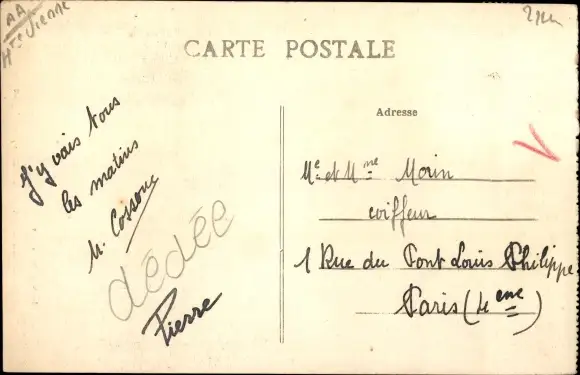 AA
Hte Vienne
CARTE POSTALE
J'y vais tous
les matins
M. Cossone
dédée
Pierre
Adresse
Me et Mme Morin
coiffeur
1 Rue du Pont Louis Philippe
Paris (4eme)